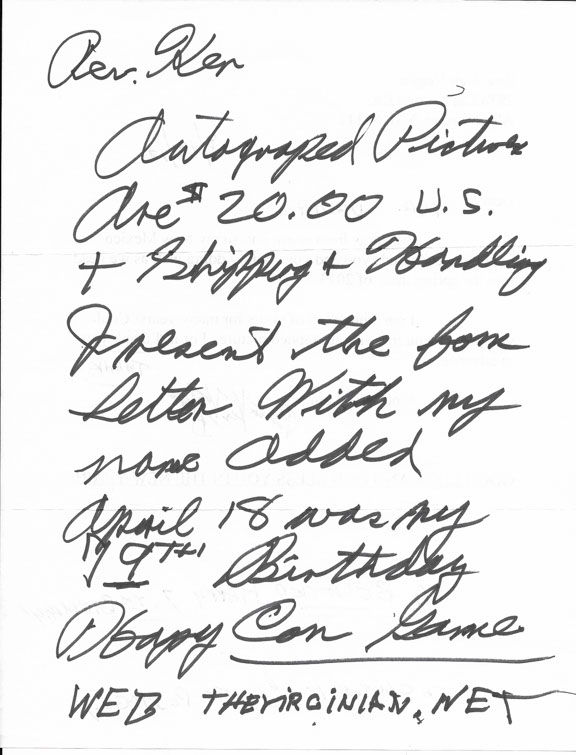 Rev. Ken
Autograped Pictures
Are $20.00 U.S.
+ Shipping + Handling
I resent the form
letter With my
name added
April 18 was my
79TH Birthday
Hapy Con Game
WEB THEVIRGINIAN.NET